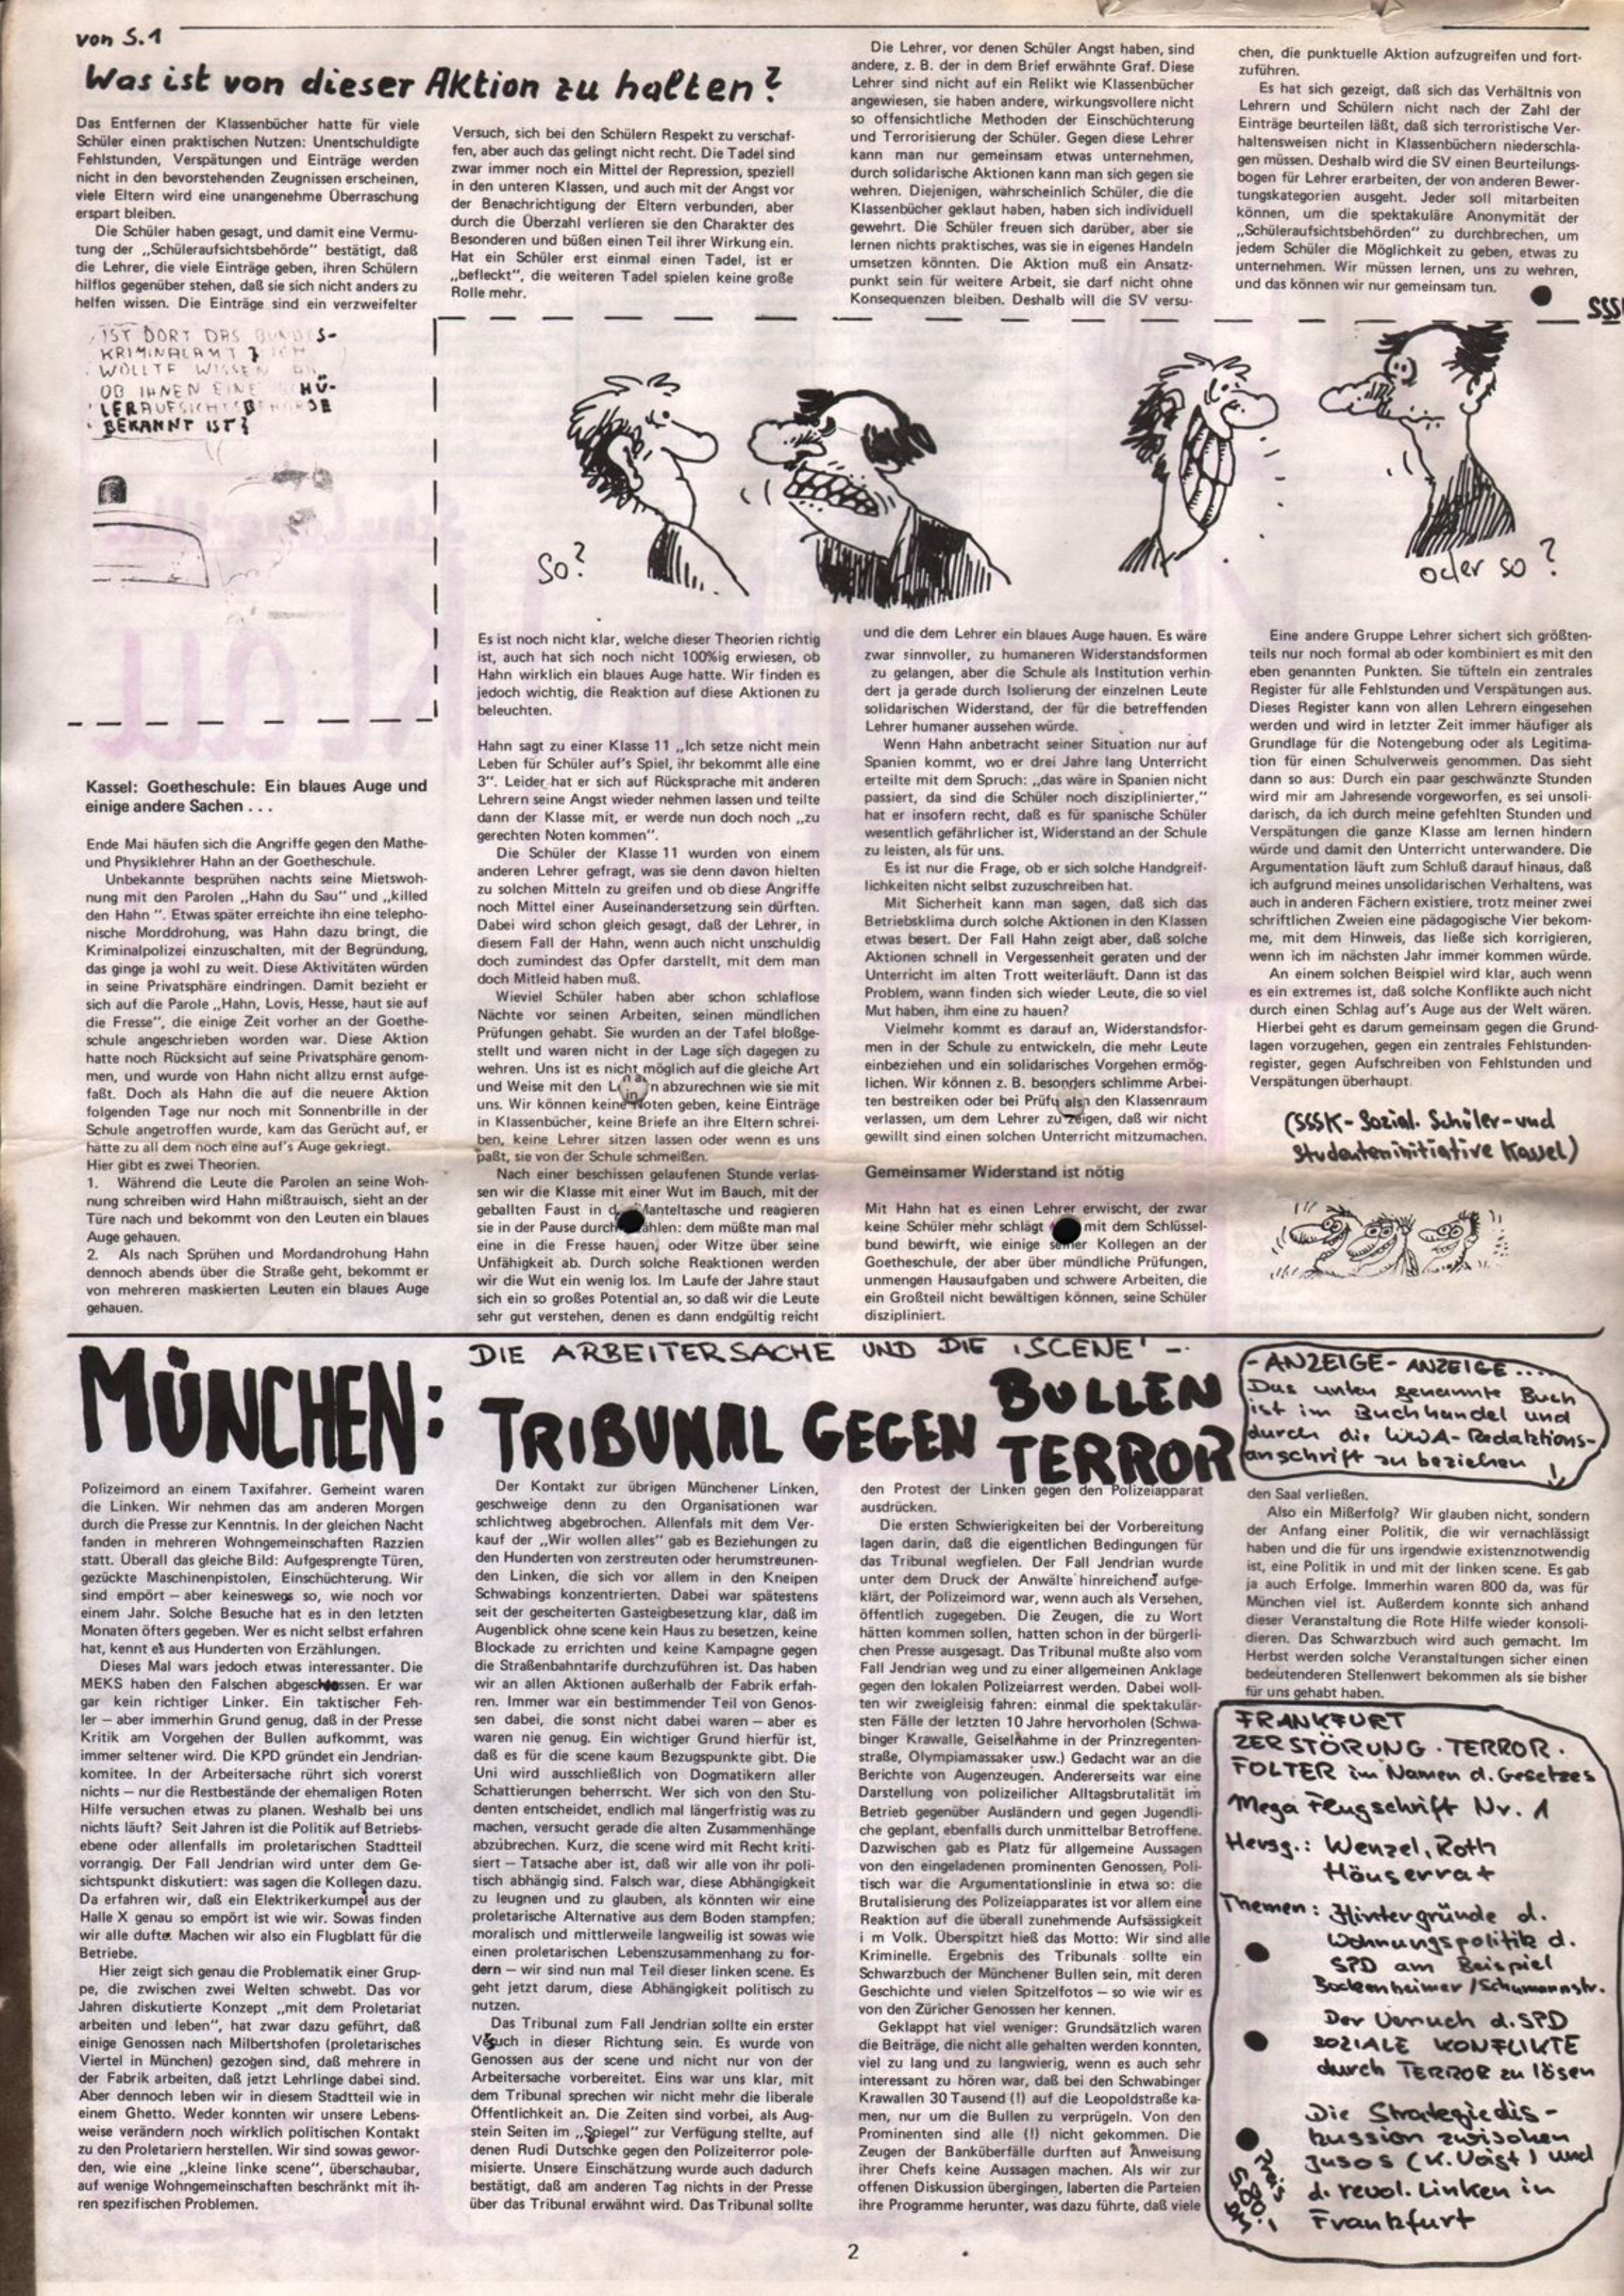 von S.1
Was ist von dieser Aktion zu halten?
Das Entfernen der Klassenbücher hatte für viele
Schüler einen praktischen Nutzen: Unentschuldigte
Fehlstunden, Verspätungen und Einträge werden
nicht in den bevorstehenden Zeugnissen erscheinen,
viele Eltern wird eine unangenehme Überraschung
erspart bleiben.
Die Schüler haben gesagt, und damit eine Vermu-
tung der „Schüleraufsichtsbehörde" bestätigt, daß
die Lehrer, die viele Einträge geben, ihren Schülern
hilflos gegenüber stehen, daß sie sich nicht anders zu
helfen wissen. Die Einträge sind ein verzweifelter
Versuch, sich bei den Schülern Respekt zu verschaf-
fen, aber auch das gelingt nicht recht. Die Tadel sind
zwar immer noch ein Mittel der Repression, speziell
in den unteren Klassen, und auch mit der Angst vor
der Benachrichtigung der Eltern verbunden, aber
durch die Überzahl verlieren sie den Charakter des
Besonderen und büßen einen Teil ihrer Wirkung ein.
Hat ein Schüler erst einmal einen Tadel, ist er
„befleckt", die weiteren Tadel spielen keine große
Rolle mehr.
Die Lehrer, vor denen Schüler Angst haben, sind
andere, z. B. der in dem Brief erwähnte Graf. Diese
Lehrer sind nicht auf ein Relikt wie Klassenbücher
angewiesen, sie haben andere, wirkungsvollere nicht
so offensichtliche Methoden der Einschüchterung
und Terrorisierung der Schüler. Gegen diese Lehrer
kann man nur gemeinsam etwas unternehmen,
durch solidarische Aktionen kann man sich gegen sie
wehren. Diejenigen, wahrscheinlich Schüler, die die
Klassenbücher geklaut haben, haben sich individuell
gewehrt. Die Schüler freuen sich darüber, aber sie
lernen nichts praktisches, was sie in eigenes Handeln
umsetzen könnten. Die Aktion muß ein Ansatz-
punkt sein für weitere Arbeit, sie darf nicht ohne
Konsequenzen bleiben. Deshalb will die SV versu-
chen, die punktuelle Aktion aufzugreifen und fort-
zuführen.
Es hat sich gezeigt, daß sich das Verhältnis von
Lehrern und Schülern nicht nach der Zahl der
Einträge beurteilen läßt, daß sich terroristische Ver-
haltensweisen nicht in Klassenbüchern niederschla-
gen müssen. Deshalb wird die SV einen Beurteilungs-
bogen für Lehrer erarbeiten, der von anderen Bewer-
tungskategorien ausgeht. Jeder soll mitarbeiten
können, um die spektakuläre Anonymität der
„Schüleraufsichtsbehörden" zu durchbrechen, um
jedem Schüler die Möglichkeit zu geben, etwas zu
unternehmen. Wir müssen lernen, uns zu wehren,
und das können wir nur gemeinsam tun.
IST DORT DAS BUNDES-
KRIMINALAMT? ICH
WOLLTE WISSEN
OB IHNEN EINE SCHÜ-
LERAUFSICHTSBEHÖRDE
BEKANNT IST?
So?
oder so?
Kassel: Goetheschule: Ein blaues Auge und
einige andere Sachen . . .
Ende Mai häufen sich die Angriffe gegen den Mathe-
und Physiklehrer Hahn an der Goetheschule.
Unbekannte besprühen nachts seine Mietswoh-
nung mit den Parolen „Hahn du Sau" und „killed
den Hahn ". Etwas später erreichte ihn eine telepho-
nische Morddrohung, was Hahn dazu bringt, die
Kriminalpolizei einzuschalten, mit der Begründung,
das ginge ja wohl zu weit. Diese Aktivitäten würden
in seine Privatsphäre eindringen. Damit bezieht er
sich auf die Parole „Hahn, Lovis, Hesse, haut sie auf
die Fresse", die einige Zeit vorher an der Goethe-
schule angeschrieben worden war. Diese Aktion
hatte noch Rücksicht auf seine Privatsphäre genom-
men, und wurde von Hahn nicht allzu ernst aufge-
faßt. Doch als Hahn die auf die neuere Aktion
folgenden Tage nur noch mit Sonnenbrille in der
Schule angetroffen wurde, kam das Gerücht auf, er
hätte zu all dem noch eine auf's Auge gekriegt.
Hier gibt es zwei Theorien.
1. Während die Leute die Parolen an seine Woh-
nung schreiben wird Hahn mißtrauisch, sieht an der
Türe nach und bekommt von den Leuten ein blaues
Auge gehauen.
2. Als nach Sprühen und Mordandrohung Hahn
dennoch abends über die Straße geht, bekommt er
von mehreren maskierten Leuten ein blaues Auge
gehauen.
Es ist noch nicht klar, welche dieser Theorien richtig
ist, auch hat sich noch nicht 100%ig erwiesen, ob
Hahn wirklich ein blaues Auge hatte. Wir finden es
jedoch wichtig, die Reaktion auf diese Aktionen zu
beleuchten.
Hahn sagt zu einer Klasse 11 „Ich setze nicht mein
Leben für Schüler auf's Spiel, ihr bekommt alle eine
3". Leider hat er sich auf Rücksprache mit anderen
Lehrern seine Angst wieder nehmen lassen und teilte
dann der Klasse mit, er werde nun doch noch „zu
gerechten Noten kommen".
Die Schüler der Klasse 11 wurden von einem
anderen Lehrer gefragt, was sie denn davon hielten
zu solchen Mitteln zu greifen und ob diese Angriffe
noch Mittel einer Auseinandersetzung sein dürften.
Dabei wird schon gleich gesagt, daß der Lehrer, in
diesem Fall der Hahn, wenn auch nicht unschuldig
doch zumindest das Opfer darstellt, mit dem man
doch Mitleid haben muß.
Wieviel Schüler haben aber schon schlaflose
Nächte vor seinen Arbeiten, seinen mündlichen
Prüfungen gehabt. Sie wurden an der Tafel bloßge-
stellt und waren nicht in der Lage sich dagegen zu
wehren. Uns ist es nicht möglich auf die gleiche Art
und Weise mit den abzurechnen wie sie mit
uns. Wir können keine Noten geben, keine Einträge
in Klassenbücher, keine Briefe an ihre Eltern schrei-
ben, keine Lehrer sitzen lassen oder wenn es uns
paßt, sie von der Schule schmeißen.
Nach einer beschissen gelaufenen Stunde verlas-
sen wir die Klasse mit einer Wut im Bauch, mit der
geballten Faust in der Manteltasche und reagieren
sie in der Pause durch ählen: dem müßte man mal
eine in die Fresse hauen, oder Witze über seine
Unfähigkeit ab. Durch solche Reaktionen werden
wir die Wut ein wenig los. Im Laufe der Jahre staut
sich ein so großes Potential an, so daß wir die Leute
sehr gut verstehen, denen es dann endgültig reicht
und die dem Lehrer ein blaues Auge hauen. Es wäre
zwar sinnvoller, zu humaneren Widerstandsformen
zu gelangen, aber die Schule als Institution verhin-
dert ja gerade durch Isolierung der einzelnen Leute
solidarischen Widerstand, der für die betreffenden
Lehrer humaner aussehen würde.
Wenn Hahn anbetracht seiner Situation nur auf
Spanien kommt, wo er drei Jahre lang Unterricht
erteilte mit dem Spruch: „das wäre in Spanien nicht
passiert, da sind die Schüler noch disziplinierter,"
hat er insofern recht, daß es für spanische Schüler
wesentlich gefährlicher ist, Widerstand an der Schule
zu leisten, als für uns.
Es ist nur die Frage, ob er sich solche Handgreif-
lichkeiten nicht selbst zuzuschreiben hat.
Mit Sicherheit kann man sagen, daß sich das
Betriebsklima durch solche Aktionen in den Klassen
etwas besert. Der Fall Hahn zeigt aber, daß solche
Aktionen schnell in Vergessenheit geraten und der
Unterricht im alten Trott weiterläuft. Dann ist das
Problem, wann finden sich wieder Leute, die so viel
Mut haben, ihm eine zu hauen?
Vielmehr kommt es darauf an, Widerstandsfor-
men in der Schule zu entwickeln, die mehr Leute
einbeziehen und ein solidarisches Vorgehen ermög-
lichen. Wir können z. B. besonders schlimme Arbei-
ten bestreiken oder bei Prüfu als den Klassenraum
verlassen, um dem Lehrer zu zeigen, daß wir nicht
gewillt sind einen solchen Unterricht mitzumachen.
Gemeinsamer Widerstand ist nötig
Mit Hahn hat es einen Lehrer erwischt, der zwar
keine Schüler mehr schlägt mit dem Schlüssel-
bund bewirft, wie einige seiner Kollegen an der
Goetheschule, der aber über mündliche Prüfungen,
unmengen Hausaufgaben und schwere Arbeiten, die
ein Großteil nicht bewältigen können, seine Schüler
diszipliniert.
Eine andere Gruppe Lehrer sichert sich größten-
teils nur noch formal ab oder kombiniert es mit den
eben genannten Punkten. Sie tüfteln ein zentrales
Register für alle Fehlstunden und Verspätungen aus.
Dieses Register kann von allen Lehrern eingesehen
werden und wird in letzter Zeit immer häufiger als
Grundlage für die Notengebung oder als Legitima-
tion für einen Schulverweis genommen. Das sieht
dann so aus: Durch ein paar geschwänzte Stunden
wird mir am Jahresende vorgeworfen, es sei unsoli-
darisch, da ich durch meine gefehlten Stunden und
Verspätungen die ganze Klasse am lernen hindern
würde und damit den Unterricht unterwandere. Die
Argumentation läuft zum Schluß darauf hinaus, daß
ich aufgrund meines unsolidarischen Verhaltens, was
auch in anderen Fächern existiere, trotz meiner zwei
schriftlichen Zweien eine pädagogische Vier bekom-
me, mit dem Hinweis, das ließe sich korrigieren,
wenn ich im nächsten Jahr immer kommen würde.
An einem solchen Beispiel wird klar, auch wenn
es ein extremes ist, daß solche Konflikte auch nicht
durch einen Schlag auf's Auge aus der Welt wären.
Hierbei geht es darum gemeinsam gegen die Grund-
lagen vorzugehen, gegen ein zentrales Fehlstunden-
register, gegen Aufschreiben von Fehlstunden und
Verspätungen überhaupt.
(SSSK-Sozial. Schüler-und
Studenteninitiative Kassel)
MÜNCHEN:
DIE ARBEITERSACHE UND DIE 'SCENE' -
TRIBUNAL GEGEN BULLEN
TERROR
Polizeimord an einem Taxifahrer. Gemeint waren
die Linken. Wir nehmen das am anderen Morgen
durch die Presse zur Kenntnis. In der gleichen Nacht
fanden in mehreren Wohngemeinschaften Razzien
statt. Überall das gleiche Bild: Aufgesprengte Türen,
gezückte Maschinenpistolen, Einschüchterung. Wir
sind empört — aber keineswegs so, wie noch vor
einem Jahr. Solche Besuche hat es in den letzten
Monaten öfters gegeben. Wer es nicht selbst erfahren
hat, kennt es aus Hunderten von Erzählungen.
Dieses Mal wars jedoch etwas interessanter. Die
MEKS haben den Falschen abgeschossen. Er war
gar kein richtiger Linker. Ein taktischer Feh-
ler — aber immerhin Grund genug, daß in der Presse
Kritik am Vorgehen der Bullen aufkommt, was
immer seltener wird. Die KPD gründet ein Jendrian-
komitee. In der Arbeitersache rührt sich vorerst
nichts — nur die Restbestände der ehemaligen Roten
Hilfe versuchen etwas zu planen. Weshalb bei uns
nichts läuft? Seit Jahren ist die Politik auf Betriebs-
ebene oder allenfalls im proletarischen Stadtteil
vorrangig. Der Fall Jendrian wird unter dem Ge-
sichtspunkt diskutiert: was sagen die Kollegen dazu.
Da erfahren wir, daß ein Elektrikerkumpel aus der
Halle X genau so empört ist wie wir. Sowas finden
wir alle dufte. Machen wir also ein Flugblatt für die
Betriebe.
Hier zeigt sich genau die Problematik einer Grup-
pe, die zwischen zwei Welten schwebt. Das vor
Jahren diskutierte Konzept „mit dem Proletariat
arbeiten und leben", hat zwar dazu geführt, daß
einige Genossen nach Milbertshofen (proletarisches
Viertel in München) gezogen sind, daß mehrere in
der Fabrik arbeiten, daß jetzt Lehrlinge dabei sind.
Aber dennoch leben wir in diesem Stadtteil wie in
einem Ghetto. Weder konnten wir unsere Lebens-
weise verändern noch wirklich politischen Kontakt
zu den Proletariern herstellen. Wir sind sowas gewor-
den, wie eine „kleine linke scene", überschaubar,
auf wenige Wohngemeinschaften beschränkt mit ih-
ren spezifischen Problemen.
Der Kontakt zur übrigen Münchener Linken,
geschweige denn zu den Organisationen war
schlichtweg abgebrochen. Allenfalls mit dem Ver-
kauf der „Wir wollen alles" gab es Beziehungen zu
den Hunderten von zerstreuten oder herumstreunen-
den Linken, die sich vor allem in den Kneipen
Schwabings konzentrierten. Dabei war spätestens
seit der gescheiterten Gasteigbesetzung klar, daß im
Augenblick ohne scene kein Haus zu besetzen, keine
Blockade zu errichten und keine Kampagne gegen
die Straßenbahntarife durchzuführen ist. Das haben
wir an allen Aktionen außerhalb der Fabrik erfah-
ren. Immer war ein bestimmender Teil von Genos-
sen dabei, die sonst nicht dabei waren — aber es
waren nie genug. Ein wichtiger Grund hierfür ist,
daß es für die scene kaum Bezugspunkte gibt. Die
Uni wird ausschließlich von Dogmatikern aller
Schattierungen beherrscht. Wer sich von den Stu-
denten entscheidet, endlich mal längerfristig was zu
machen, versucht gerade die alten Zusammenhänge
abzubrechen. Kurz, die scene wird mit Recht kriti-
siert — Tatsache aber ist, daß wir alle von ihr poli-
tisch abhängig sind. Falsch war, diese Abhängigkeit
zu leugnen und zu glauben, als könnten wir eine
proletarische Alternative aus dem Boden stampfen;
moralisch und mittlerweile langweilig ist sowas wie
einen proletarischen Lebenszusammenhang zu for-
dern — wir sind nun mal Teil dieser linken scene. Es
geht jetzt darum, diese Abhängigkeit politisch zu
nutzen.
Das Tribunal zum Fall Jendrian sollte ein erster
Versuch in dieser Richtung sein. Es wurde von
Genossen aus der scene und nicht nur von der
Arbeitersache vorbereitet. Eins war uns klar, mit
dem Tribunal sprechen wir nicht mehr die liberale
Öffentlichkeit an. Die Zeiten sind vorbei, als Aug-
stein Seiten im „Spiegel" zur Verfügung stellte, auf
denen Rudi Dutschke gegen den Polizeiterror pole-
misierte. Unsere Einschätzung wurde auch dadurch
bestätigt, daß am anderen Tag nichts in der Presse
über das Tribunal erwähnt wird. Das Tribunal sollte
den Protest der Linken gegen den Polizeiapparat
ausdrücken.
Die ersten Schwierigkeiten bei der Vorbereitung
lagen darin, daß die eigentlichen Bedingungen für
das Tribunal wegfielen. Der Fall Jendrian wurde
unter dem Druck der Anwälte hinreichend aufge-
klärt, der Polizeimord war, wenn auch als Versehen,
öffentlich zugegeben. Die Zeugen, die zu Wort
hätten kommen sollen, hatten schon in der bürgerli-
chen Presse ausgesagt. Das Tribunal mußte also vom
Fall Jendrian weg und zu einer allgemeinen Anklage
gegen den lokalen Polizeiarrest werden. Dabei woll-
ten wir zweigleisig fahren: einmal die spektakulär-
sten Fälle der letzten 10 Jahre hervorholen (Schwa-
binger Krawalle, Geiselnahme in der Prinzregenten-
straße, Olympiamassaker usw.) Gedacht war an die
Berichte von Augenzeugen. Andererseits war eine
Darstellung von polizeilicher Alltagsbrutalität im
Betrieb gegenüber Ausländern und gegen Jugendli-
che geplant, ebenfalls durch unmittelbar Betroffene.
Dazwischen gab es Platz für allgemeine Aussagen
von den eingeladenen prominenten Genossen. Poli-
tisch war die Argumentationslinie in etwa so: die
Brutalisierung des Polizeiapparates ist vor allem eine
Reaktion auf die überall zunehmende Aufsässigkeit
i m Volk. Überspitzt hieß das Motto: Wir sind alle
Kriminelle. Ergebnis des Tribunals sollte ein
Schwarzbuch der Münchener Bullen sein, mit deren
Geschichte und vielen Spitzelfotos — so wie wir es
von den Züricher Genossen her kennen.
Geklappt hat viel weniger: Grundsätzlich waren
die Beiträge, die nicht alle gehalten werden konnten,
viel zu lang und zu langwierig, wenn es auch sehr
interessant zu hören war, daß bei den Schwabinger
Krawallen 30 Tausend (!) auf die Leopoldstraße ka-
men, nur um die Bullen zu verprügeln. Von den
Prominenten sind alle (!) nicht gekommen. Die
Zeugen der Banküberfälle durften auf Anweisung
ihrer Chefs keine Aussagen machen. Als wir zur
offenen Diskussion übergingen, laberten die Parteien
ihre Programme herunter, was dazu führte, daß viele
den Saal verließen.
Also ein Mißerfolg? Wir glauben nicht, sondern
der Anfang einer Politik, die wir vernachlässigt
haben und die für uns irgendwie existenznotwendig
ist, eine Politik in und mit der linken scene. Es gab
ja auch Erfolge. Immerhin waren 800 da, was für
München viel ist. Außerdem konnte sich anhand
dieser Veranstaltung die Rote Hilfe wieder konsoli-
dieren. Das Schwarzbuch wird auch gemacht. Im
Herbst werden solche Veranstaltungen sicher einen
bedeutenderen Stellenwert bekommen als sie bisher
für uns gehabt haben.
-ANZEIGE-ANZEIGE....
Das unten genannte Buch
ist im Buchhandel und
durch die WWA-Redaktions-
anschrift zu beziehen !
FRANKFURT
ZERSTÖRUNG.TERROR.
FOLTER im Namen d. Gesetzes
Mega Flugschrift Nr. 1
Hersg.: Wenzel, Roth
Häuserrat
Themen: Hintergründe d.
Wohnungspolitik d.
SPD am Beispiel
Bockenheimer/Schumannstr.
Der Versuch d. SPD
SOZIALE KONFLIKTE
durch TERROR zu lösen
Die Strategiedis-
kussion zwischen
Jusos (K. Voigt) und
d. revol. Linken in
Frankfurt
Preis
5.80
DM
2